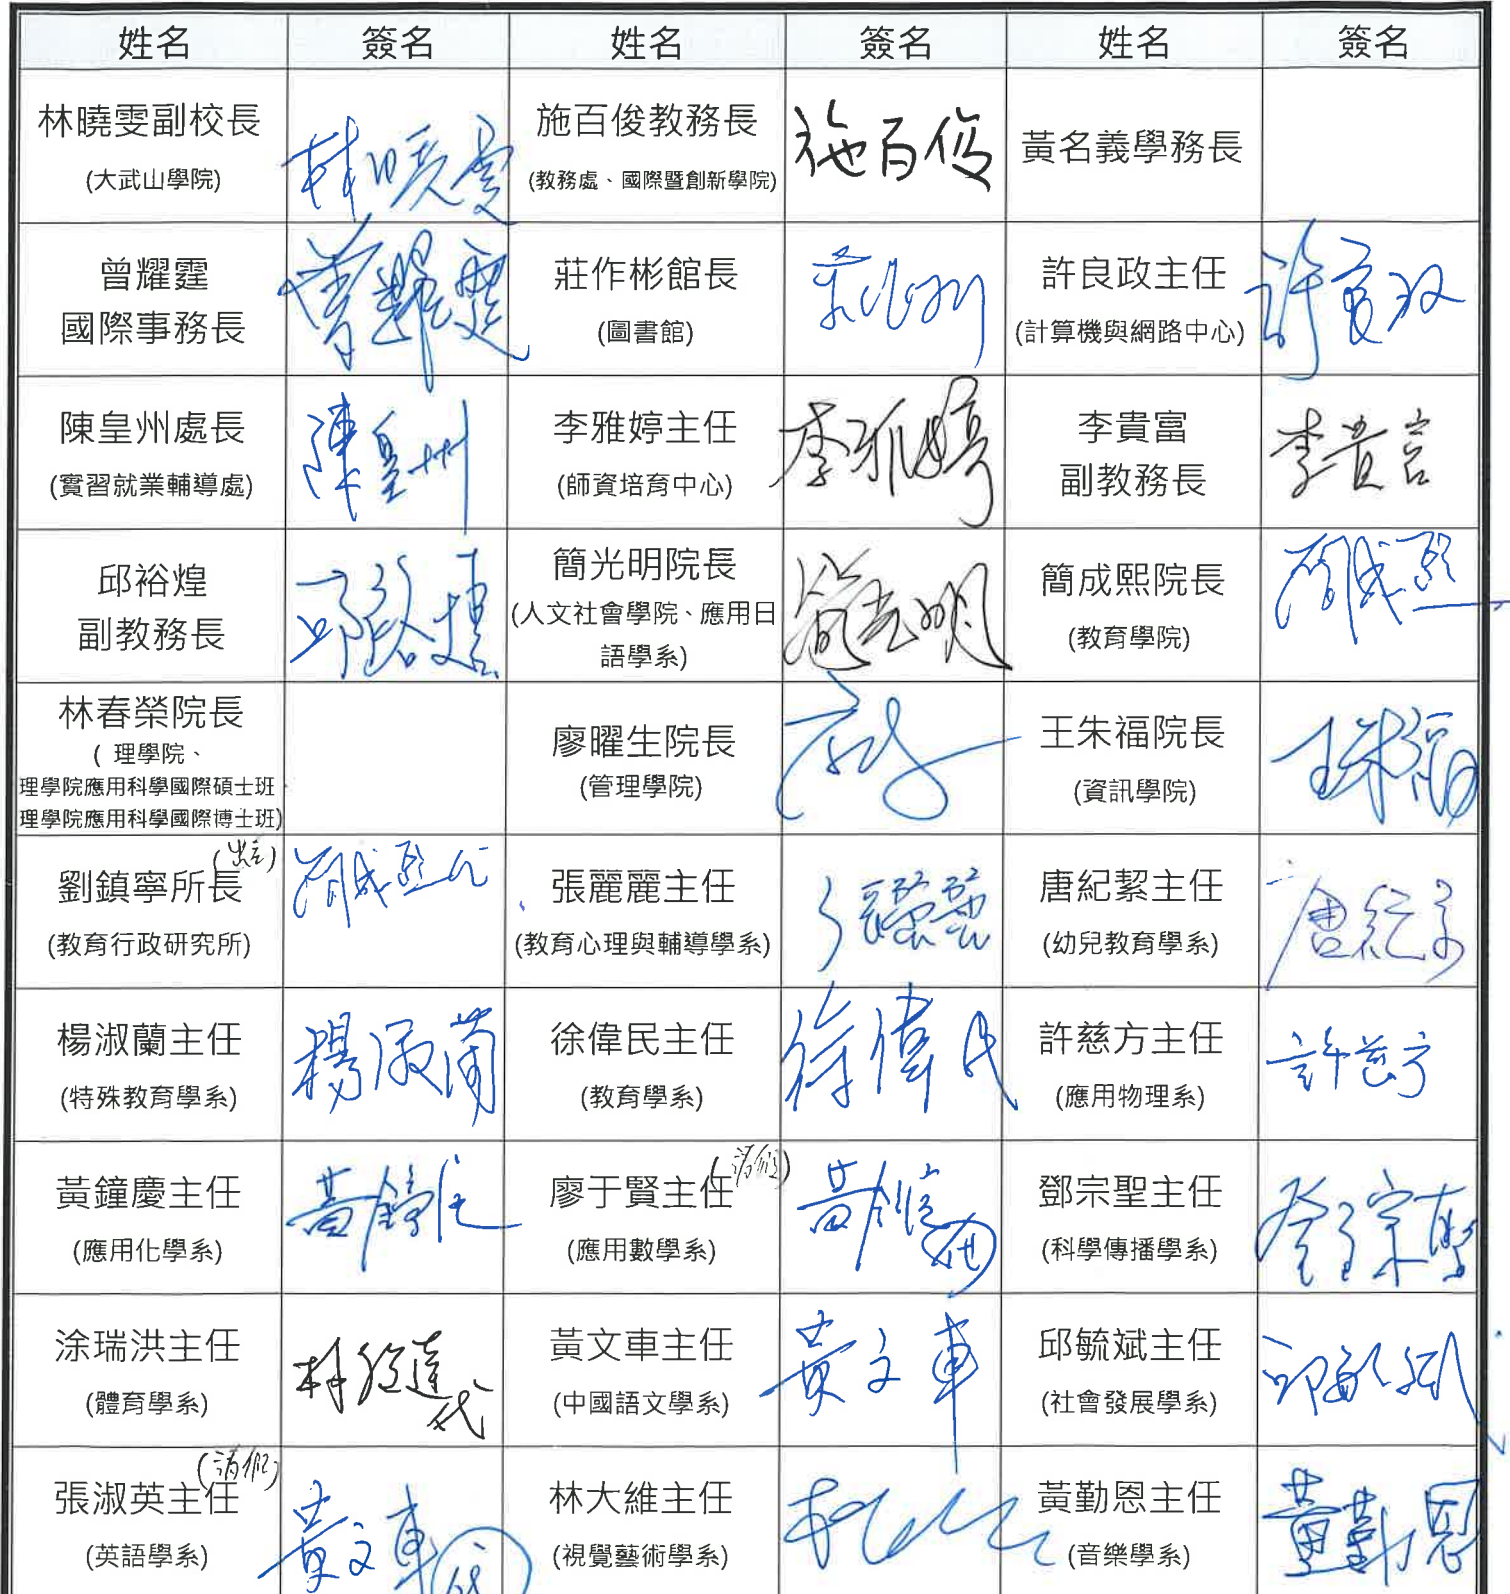 姓名 簽名 姓名 簽名 姓名 簽名
林曉雯副校長
(大武山學院)
林曉雯
施百俊教務長
(教務處、國際暨創新學院)
施百俊
黃名義學務長
曾耀霆
國際事務長
曾耀霆
莊作彬館長
(圖書館)
莊作彬
許良政主任
(計算機與網路中心)
許良政
陳皇州處長
(實習就業輔導處)
陳皇州
李雅婷主任
(師資培育中心)
李雅婷
李貴富
副教務長
李貴富
邱裕煌
副教務長
邱裕煌
簡光明院長
(人文社會學院、應用日
語學系)
簡光明
簡成熙院長
(教育學院)
簡成熙
林春榮院長
( 理學院、
理學院應用科學國際碩士班
理學院應用科學國際博士班)
廖曜生院長
(管理學院)
王朱福院長
(資訊學院)
王朱福
劉鎮寧所長
(教育行政研究所)
簡成熙代
張麗麗主任
(教育心理與輔導學系)
張麗麗
唐紀絜主任
(幼兒教育學系)
唐紀絜
楊淑蘭主任
(特殊教育學系)
楊淑蘭
徐偉民主任
(教育學系)
徐偉民
許慈方主任
(應用物理系)
許慈方
黃鐘慶主任
(應用化學系)
黃鐘慶
廖于賢主任
(請假)
(應用數學系)
黃鐘慶
鄧宗聖主任
(科學傳播學系)
鄧宗聖
涂瑞洪主任
(體育學系)
代
黃文車主任
(中國語文學系)
黃文車
邱毓斌主任
(社會發展學系)
邱毓斌
張淑英主任
(請假)
(英語學系)
黃文車
林大維主任
(視覺藝術學系)
黃勤恩主任
(音樂學系)
黃勤恩